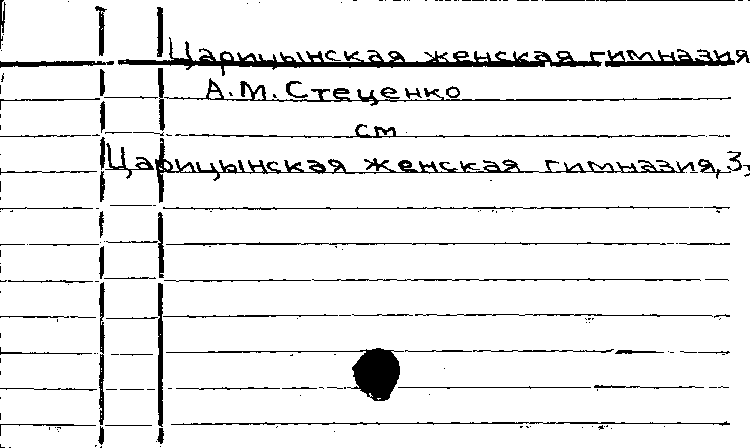 Царицынская женская гимназия
А.М.Стеценко
см
Царицынская женская гимназия, 3,